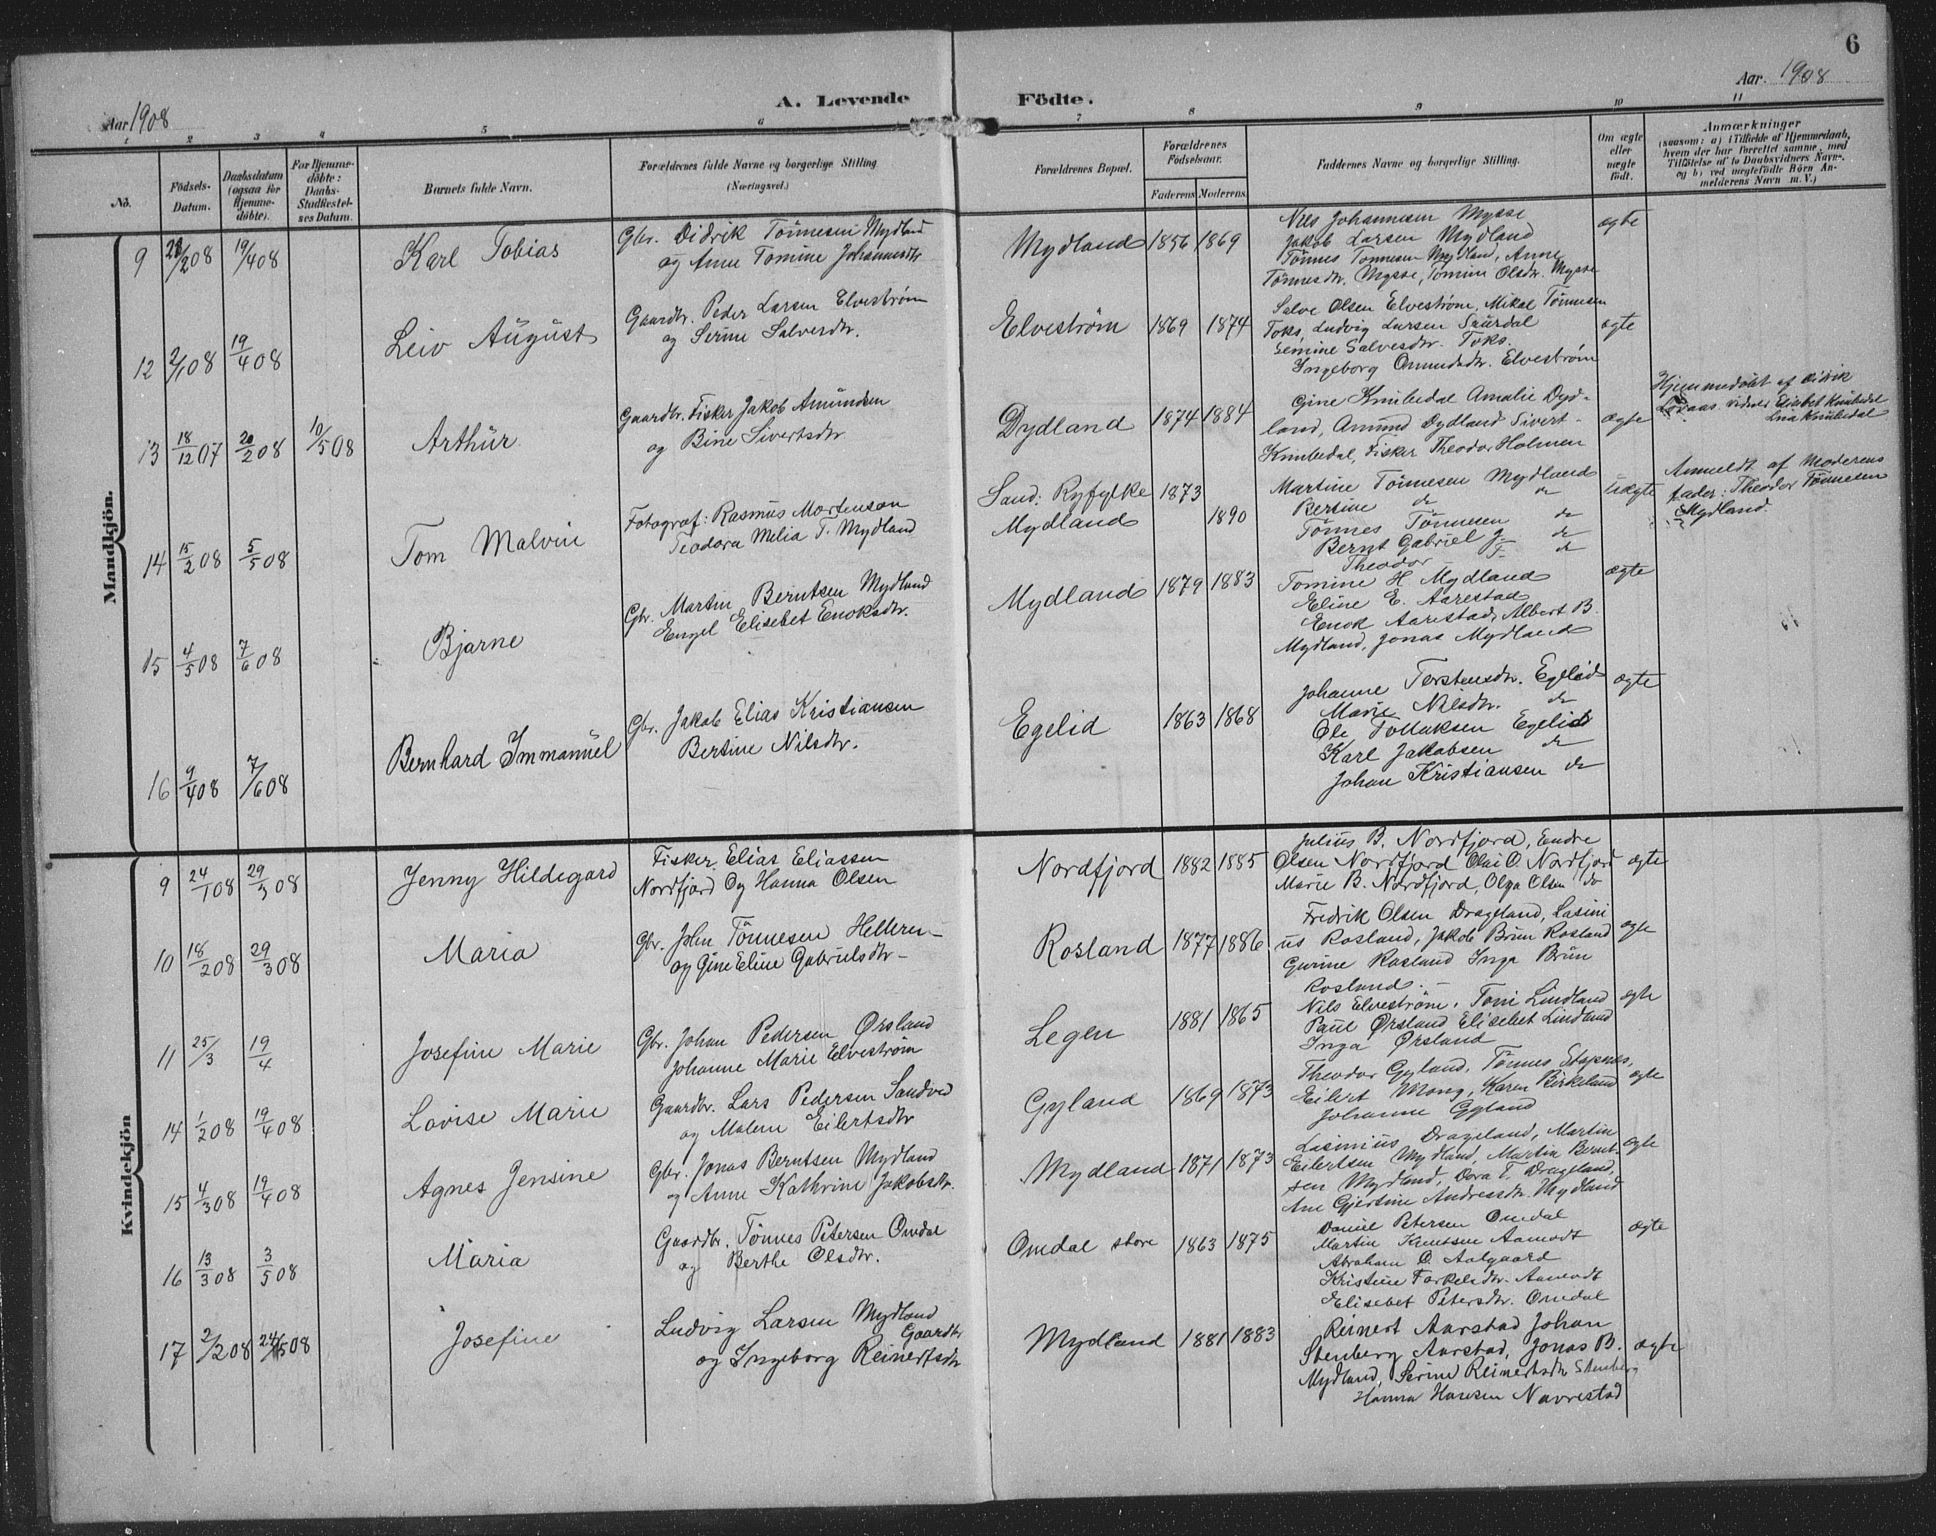 6
Aar 1908
A. Levende
Födte.
Aar. 1908
1 2 3 4 5 6 7 8 9 10 11
No.
Födsels-
Datum.
Daabsdatum
(ogsaa for
Hjemme-
döbte).
For Hjemme-
döbte:
Daabs-
Stadfæstel-
ses Datum.
Barnets fulde Navn.
Forældrenes fulde Navne og borgerlige Stilling
(Næringsvei.)
Forældrenes Bopæl.
Forældrenes
Födselsaar.
Faderens Moderens
Faddernes Navne og borgerlige Stilling.
Om ægte
eller
uægte
födt.
Anmærkninger
(saasom: a) i Tilfælde af Hjemmedaab,
hvem der har forrettet samme, med
Tilföielse af to Daabsvidners Navne
og b) ved uægtefödte Börn An-
melderens Navn m. V.)
Mandkjön.
9 /2 08 19/4 08 Karl Tobias
Gbr. Didrik Tönnesen Mydland
og Anne Tomine Johannesdtr
Mydland 1856 1869
Nils Johannesen Mysse
Jakob Larsen Mydland
Tönnes Tonnesen Mydland, Anne
Tönnesdtr. Mysse, Tomine Olsdtr. Mysse
ægte
12 2/1 08 19/4 08 Leiv August
Gaardbr. Peder Larsen Elveström
og Serine Salvesdtr.
Elveström 1869 1874
Salve Olsen Elveström, Mikal Tönnesen
Toks, Ludvig Larsen Suurdal
Semine Salvesdtr. Toks.
Ingeborg Omundsdtr. Elveström
ægte
13 18/12 07 20/2 08 10/5 08 Arthur
Gaardbr. Fisker Jakob Amundsen
og Bine Sivertsdtr
Dydland 1874 1884
Gine Knubedal Amalie Dyd-
land, Amund Dydland Sivert
Knubedal, Fisker Theodor Holmen
ægte
Hjemmedöbt af Didrik
vidner Elisbet Knubedal
Lina Knubedal
14 15/2 08 5/5 08 Tom Malvin
Fotograf: Rasmus Mortenson
Teodora Melia T. Mydland
Sand: Ryfylke 1873
Mydland 1890
Martine Tönnesen Mydland
Bertine do do
Tönnes Tönnesen do
Bernt Gabriel J. do
Theodor T. do
uægte
Anmeldt af Moderens
fader: Theodor Tönnesen
Mydland.
15 4/5 08 7/6 08 Bjarne
Gbr. Martin Berntsen Mydland
Engel Elisebet Enoksdtr.
Mydland 1879 1883
Tomine H Mydland
Eline E. Aarestad
Enok Aarestad, Albert B.
Mydland, Jonas Mydland
ægte
16 9/4 08 7/6 08 Bernhard Immanuel
Gbr. Jakob Elias Kristiansen
Bertine Nilsdtr.
Egelid 1863 1868
Johanne Torstensdtr. Egelid
Marie Nilsdtr. do
Ole Tollaksen Egelid
Karl Jakobsen do
Johan Kristiansen do
ægte
Kvindekjön
9 24/1 08 29/3 08 Jenny Hildegard
Fisker, Elias Eliassen
Nordfjord Og Hanna Olsen
Nordfjord 1882 1885
Julius B. Nordfjord, Endre
Olsen Nordfjord Olai O. Nordfjord
Marie B. Nordfjord, Olga Olsen do
ægte
10 18/2 08 29/3 08 Maria
Gbr. John Tönnesen Helleren
og Gine Eline Gabrielsdtr
Rosland 1877 1886
Fredrik Olsen Drageland, Lasini
us Rosland, Jakob Brun Rosland
Gurine Rosland Inga Brun
Rosland.
ægte
11 25/3 19/4 Josefine Marie
Gbr. Johan Pedersen Ørsland
Johanne Marie Elveström
Legen 1881 1865
Nils Elveström, Toni Lindland
Paul Ørsland Elisebet Lindland
Inga Ørsland
ægte
14 1/2 08 19/4 08 Lovise Marie
Gaardbr. Lars Pedersen Sandvad
og Malene Eilertsdtr
Gyland 1869 1873
Theodor Gyland, Tönnes Stapnes,
Eilert Mong, Karen Birkeland
Johanne Gyland
ægte
15 4/3 08 19/4 08 Agnes Jensine
Gbr. Jonas Berntsen Mydland
og Anne Kathrine Jakobsdtr.
Mydland 1871 1873
Lasinius Drageland, Martin
Eilertsen Mydland, Martin Bernt-
sen Mydland, Dora T. Drageland,
Ane Gjertine Andreasdtr. Mydland
ægte
16 13/3 08 3/5 08 Maria
Gaardbr. Tönnes Petersen Omdal
og Berthe Olsdtr.
Omdal store 1863 1875
Daniel Petersen Omdal
Martin Knutsen Aamodt
Abraham D. Aalgaard
Kristine Torkelsdtr. Aamodt
Elisebet Petersdtr. Omdal
ægte
17 2/2 08 24/5 08 Josefine
Ludvig Larsen Mydland
Gaardbr
og Ingeborg Reinertsdtr
Mydland 1881 1883
Reinert Aarstad Johan
Stenberg Aarstad, Jonas B.
Mydland, Serine Reinertsdtr Stenberg
Hanna Hansen Navrestad
ægte